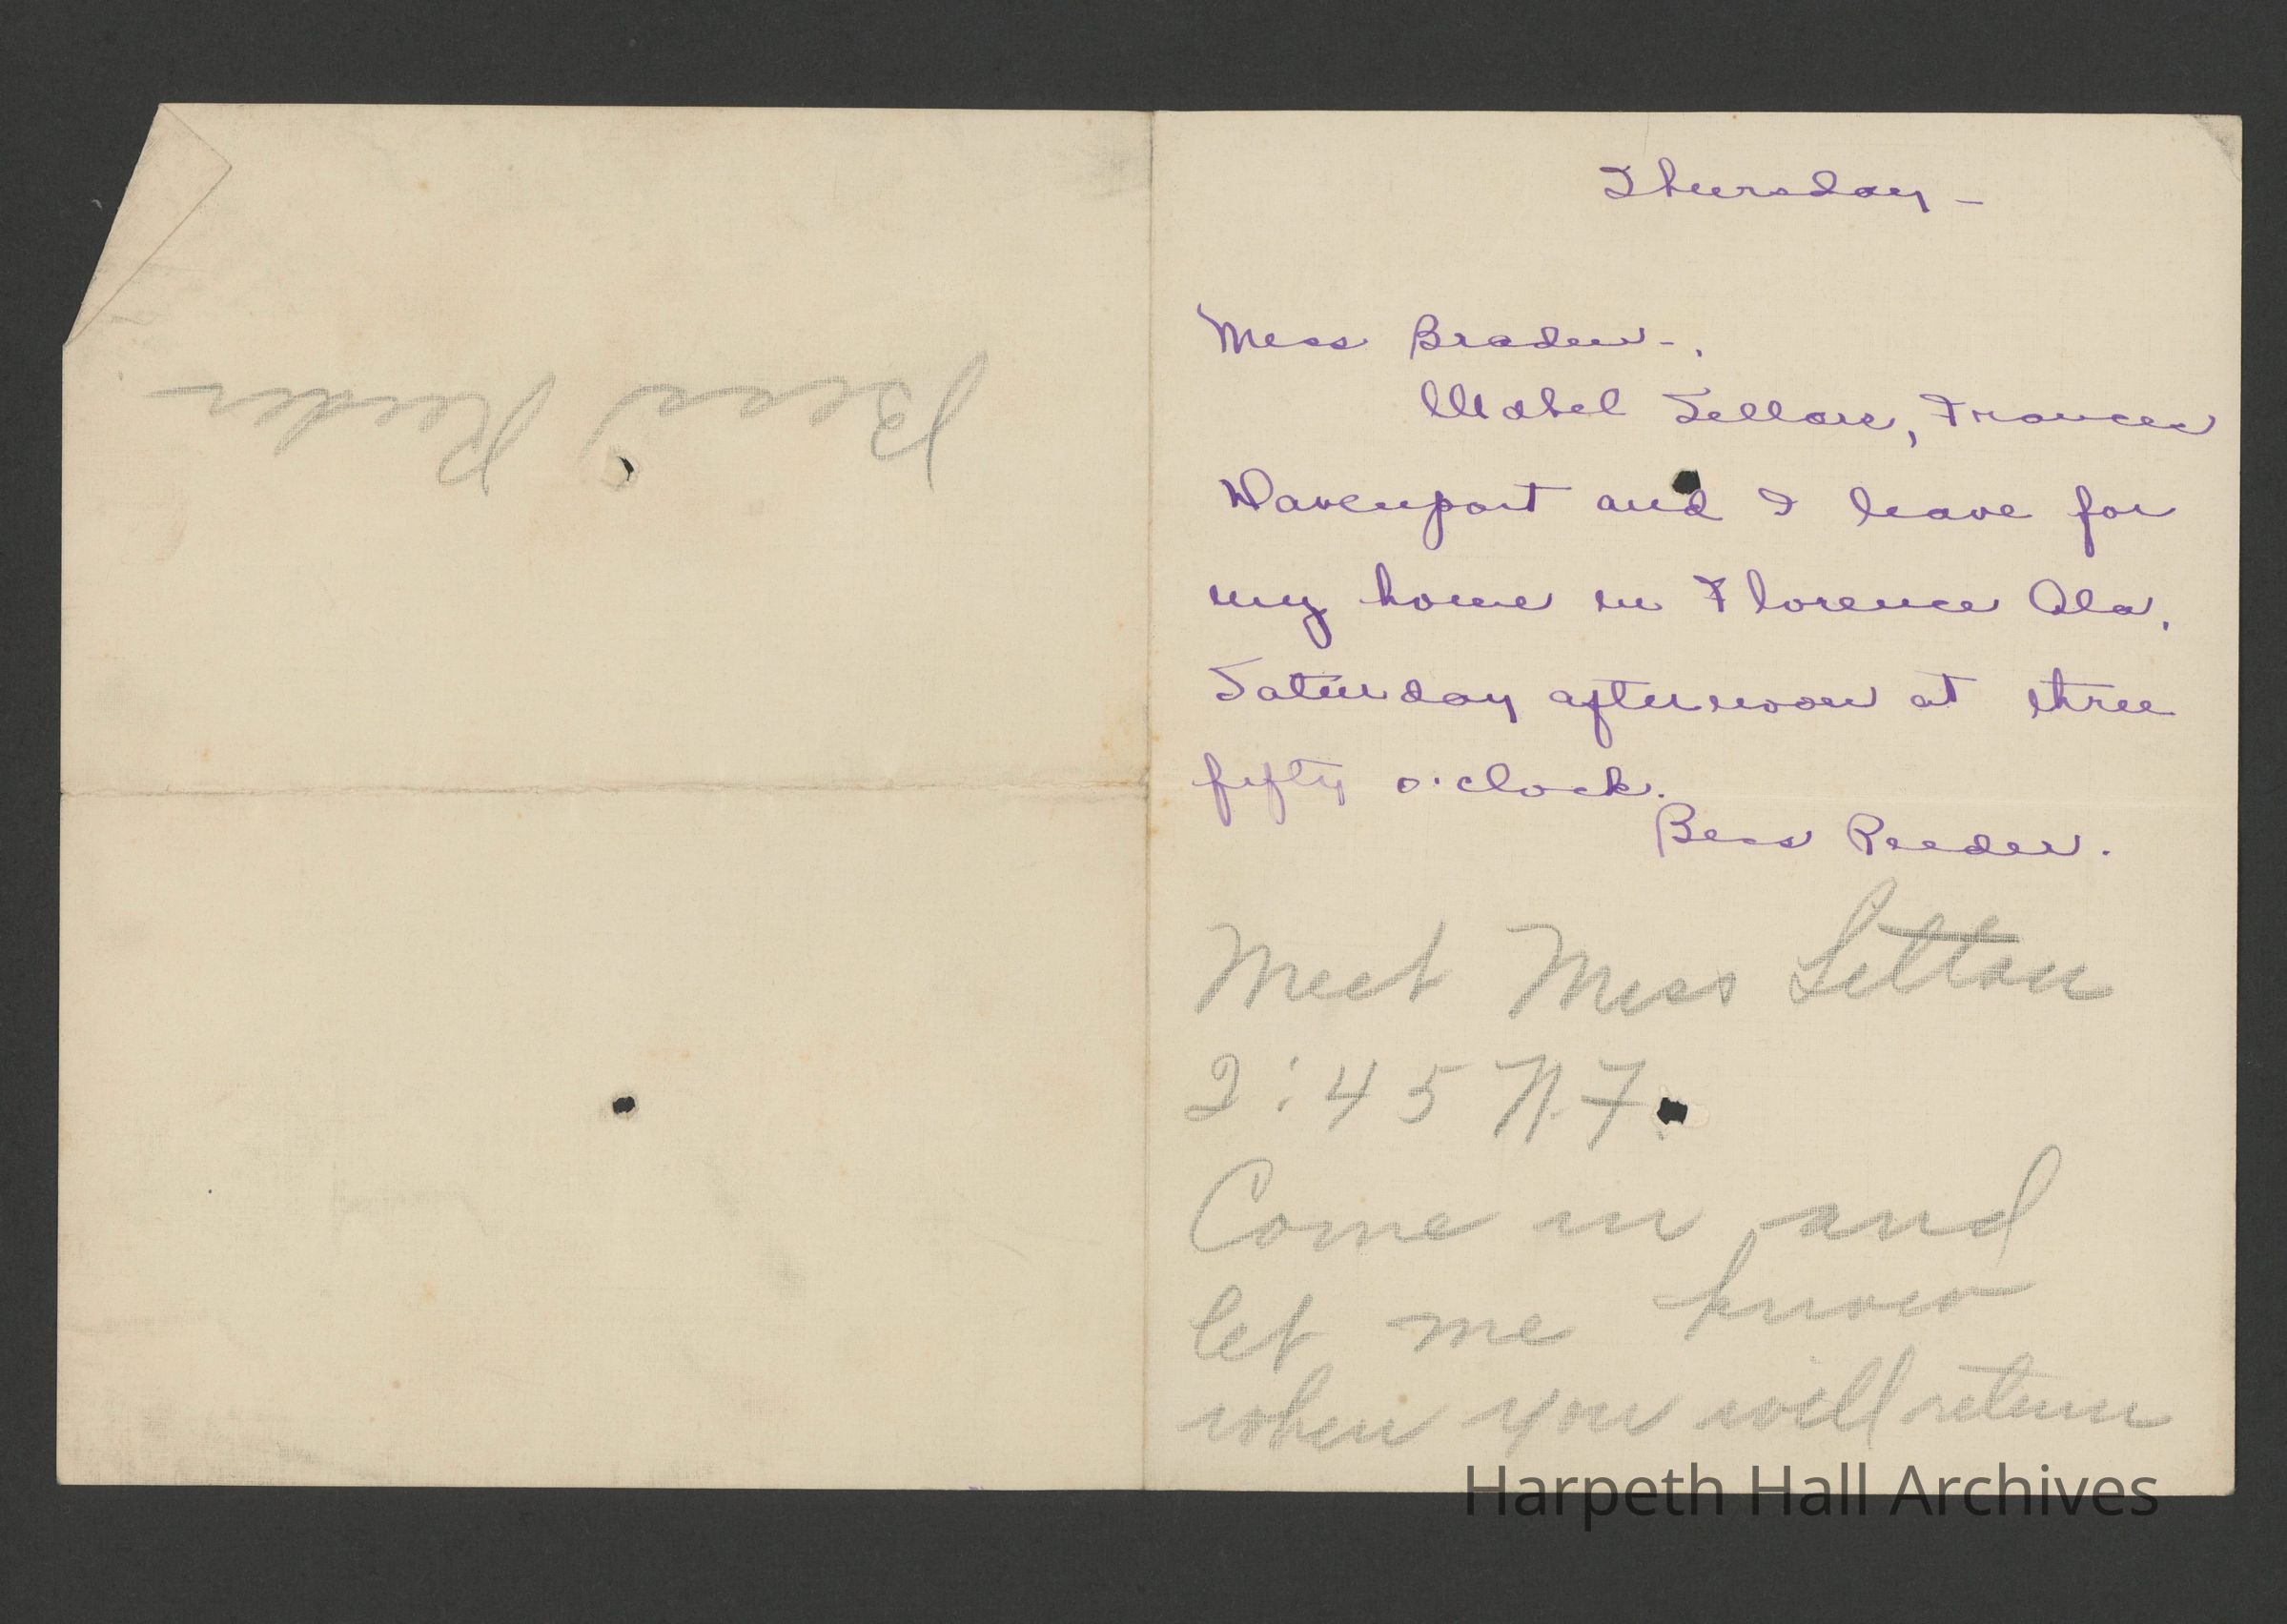 Bess Reeder
Thursday -
Miss Braden -.
Mabel Sellars, Frances
Davenport and I leave for
my home in Florence Ala.
Saturday afternoon at three
fifty o'clock.
Bess Reeder.
Meet Miss Litton
2:45 N.F.
Come in and
let me know
when you will return
Harpeth Hall Archives